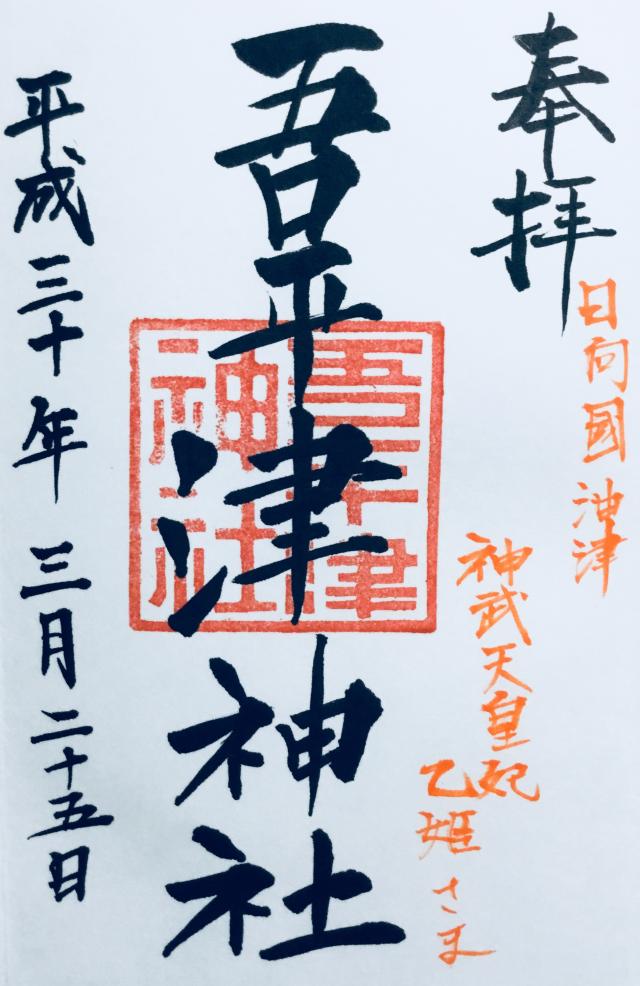 奉拝
日向國油津
神武天皇妃
乙姫さま
吾平津神社
吾平津
神社
平成三十年三月二十五日